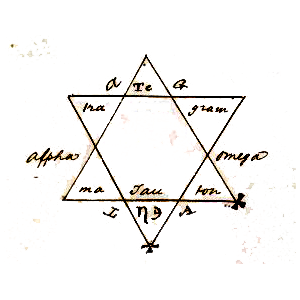 A Te G
tra gram
alpha omega
ma Tau ton
I A